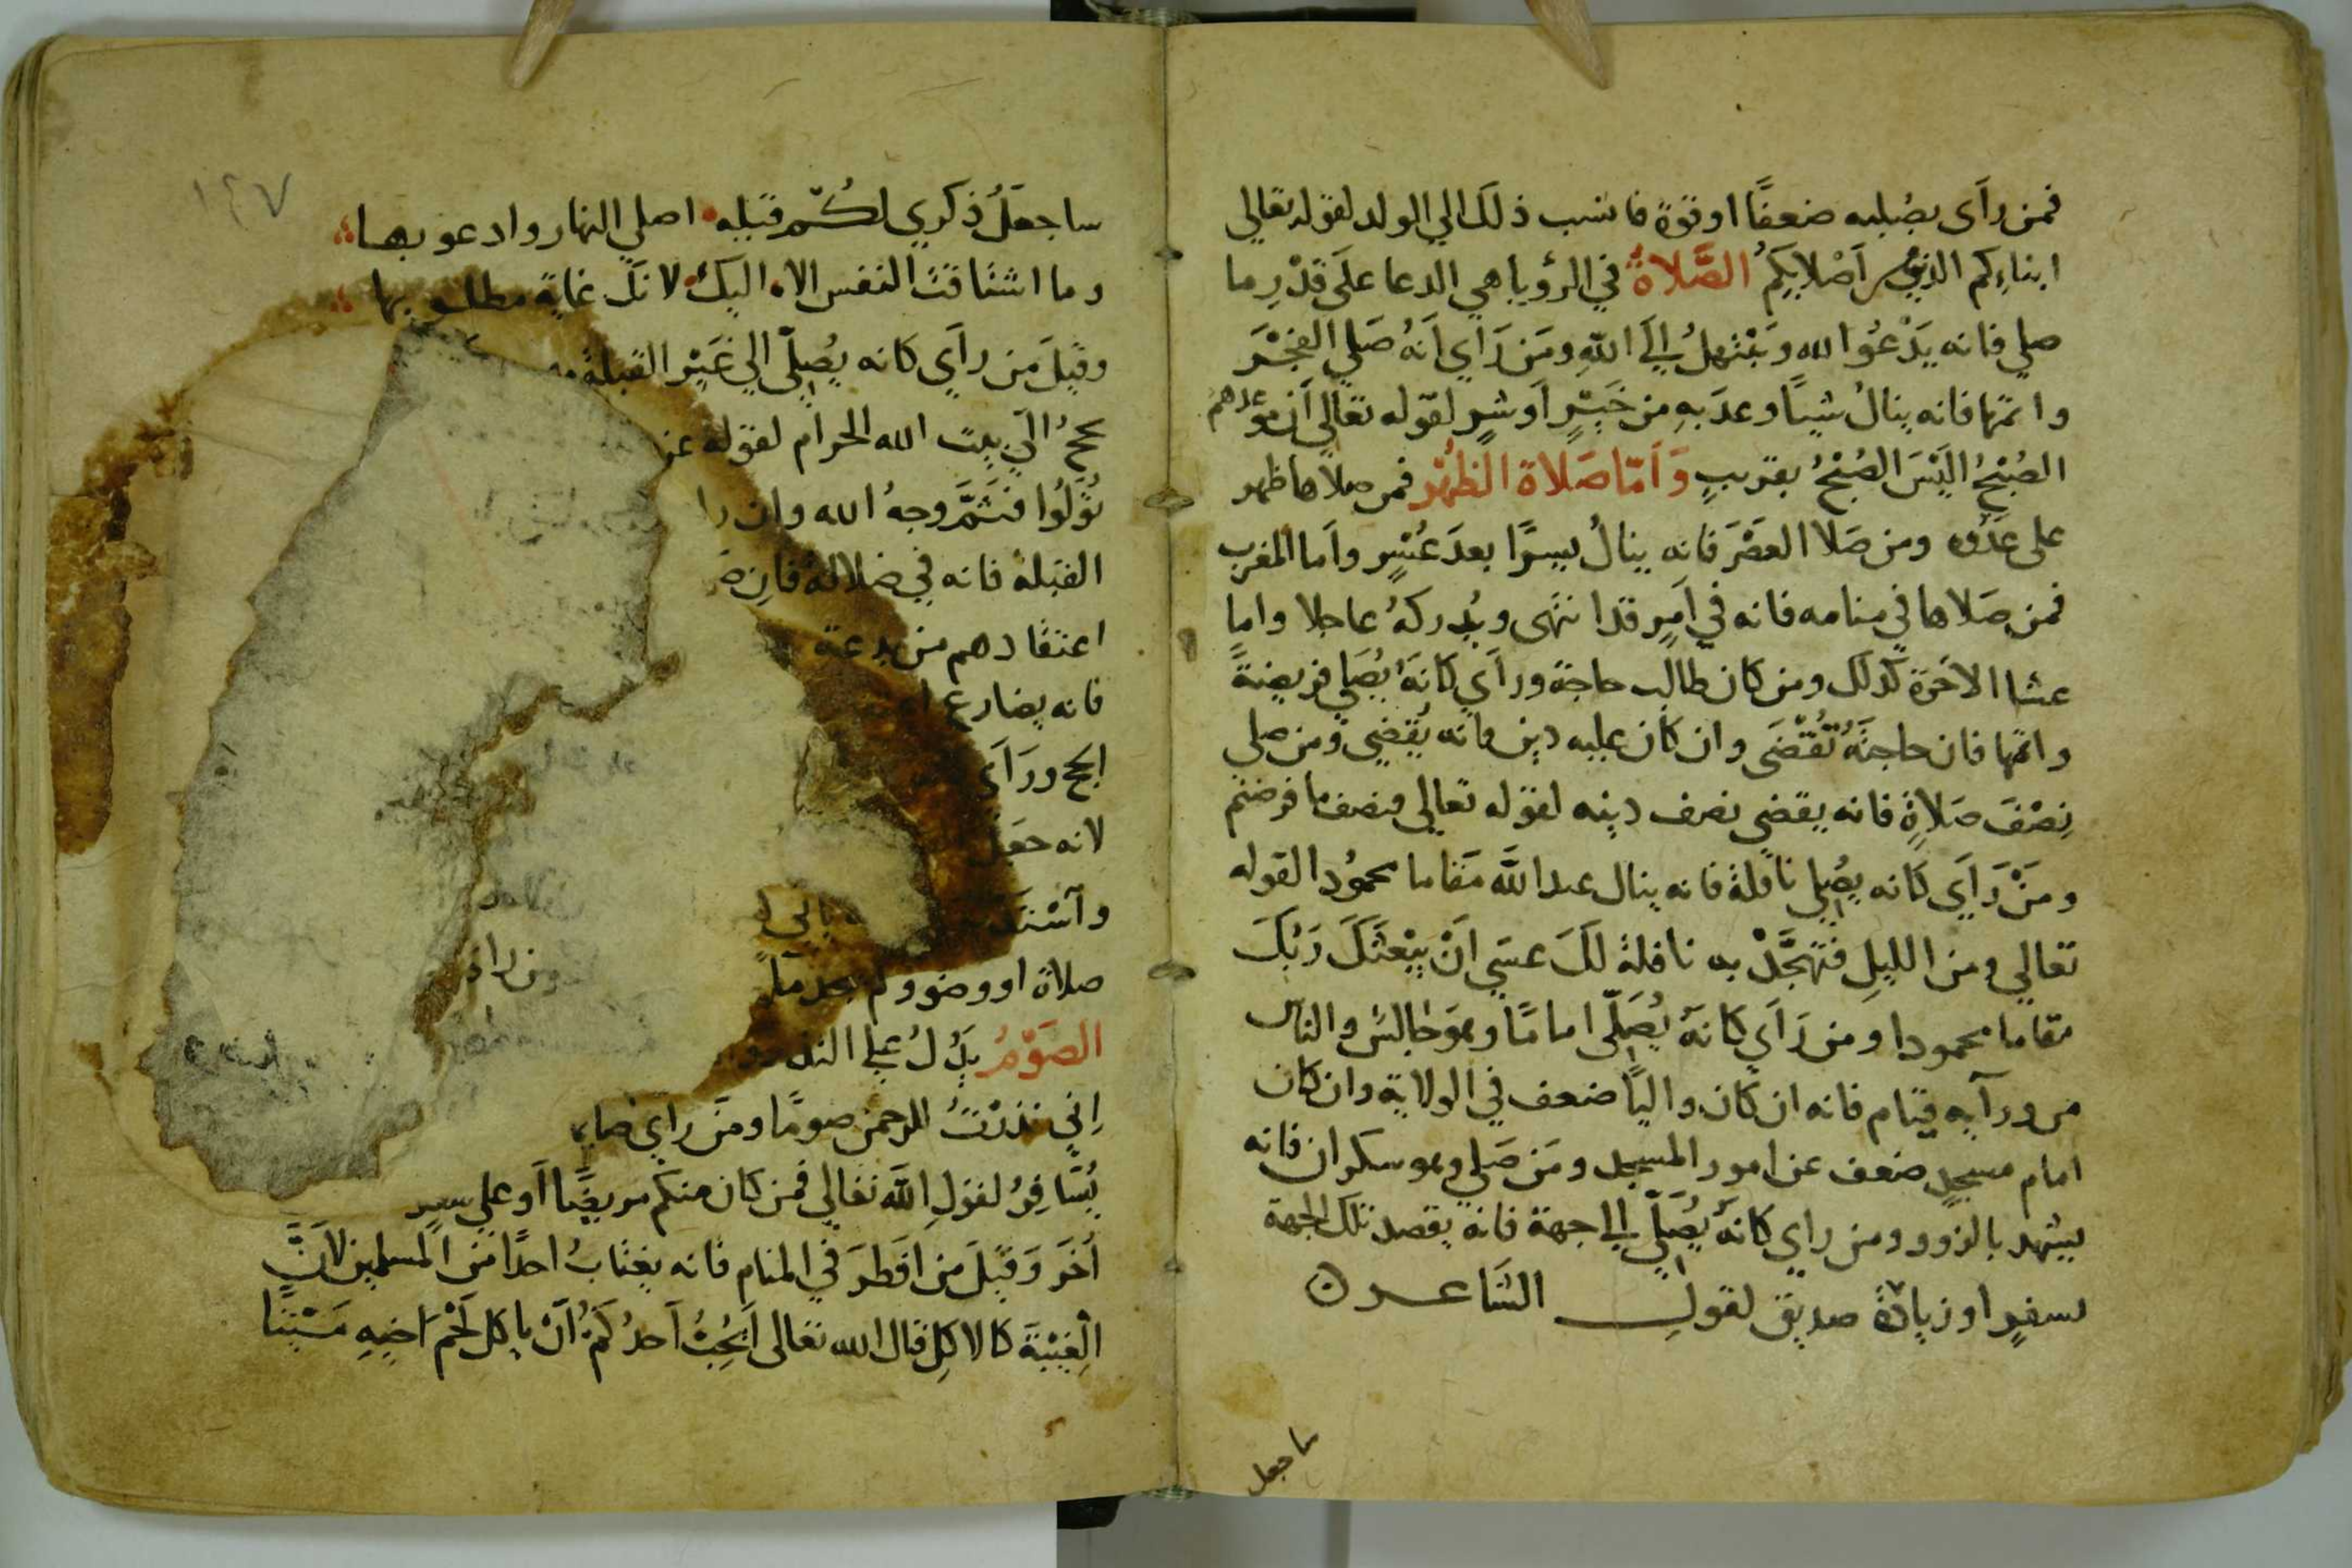 فمن رأى بصلبه ضعفًا اوقوةً فانسب ذلك الي الولد لقوله تعالي
ابناءكم الذين من اَصْلابِكمُ الصَّلاةُ في الرؤيا هي الدعا علَى قَدْرِ ما
صلي فانه يَدْعُوا الله وَيَبْتهلُ اِلَى اللّهِ ومَن رَأي اَنهُ صَلي الفَجْرَ
واتمّها فانه ينالُ شيئًا وعدَ بهِ من خَيْرٍ اَو شرٍ لقوله تعالي اِن موعدهم
الصُبْحُ اليْسَ الصُبْحُ بقريبٍ وَاَمّا صَلاة الظهْر فمن صلاها ظهر
على عَدُوه ومن صَلا العصْرَ فانه ينالُ يسرًا بعدَ عُسْرٍ واَما المغرب
فمن صَلاها في منامه فانه في اَمرٍ قد انتهى ويُدركهُ عاجلا واما
عشا الاخرَة كذلك ومن كان طالب حاجة وراَي كانَهُ يُصَلي فريضةً
واتمّها فان حاجتَهُ تُقْضَى وان كان عليه دين فانه يُقضي ومن صلي
نِصْفَ صَلاةٍ فانه يقضي نصف دينه لقوله تعالي فنصف ما فرضتم
ومَنْ رَاَي كانه يصُلي نافلةً فانه ينال عند اللَّه مَقاما محمودا لقوله
تعالي ومن الليلِ فتهجَّدْ به نافلةً لكَ عسَي اَنْ يبْعثَكَ رَبّكَ
مقاما محمودا ومن رَاَي كانهُ يُصَلّى امامًا وهوَ جالسٌ والناس
من ورآيه قيام فانه ان كان واليًا ضعف في الولاية وان كان
امام مسجدٍ ضعف عن امور المسجد ومَن صَلي وهو سكران فانه
يشهد بالزور ومن راي كانَهُ يُصَلّي اِلى جهة فانه يقصد تلك الجهة
بسفرٍ او زيادة صديق لقولِ الشاعر
ساجعل
١٤٧
ساجعَلُ ذكري لكُمْ قبله اصلي النهار وادعو بها
وما اشتاقت النفس الا اليك لانك غاية مطلوبها
وقيلَ من رآَي كانه يُصلّى الي غَيْر القبلة
يحجُ الَي بيت الله الحرام لقوله عز
تُوَلُوا فثَمَّ وجهُ الله وان را
القبلة فانه في ضلالة فان
اعتقادهم من بدعة
فانه يضارع
الحج ورَآَي
لانه جعَل
صلاة او وضو ولم يجد
الصَوْمُ يدُلُ علي النذ
اِني نذرْتُ للرحمن صومًا ومَن راي صا
يُسَافِرُ لقولِ اللَّه تعالي فمن كان منكم مريضًا اَو علي سفر
اُخَر وَقيلَ من اَفطرَ في المنام فانه يغتابُ احدًا من المسلمين لاَنَّ
الْغيْبَةَ كالاكِل قال الله تعالى اَيُحِبُ اَحدُكُمْ اَنْ ياكل لَحْمَ اَخيهِ مَيْتًا